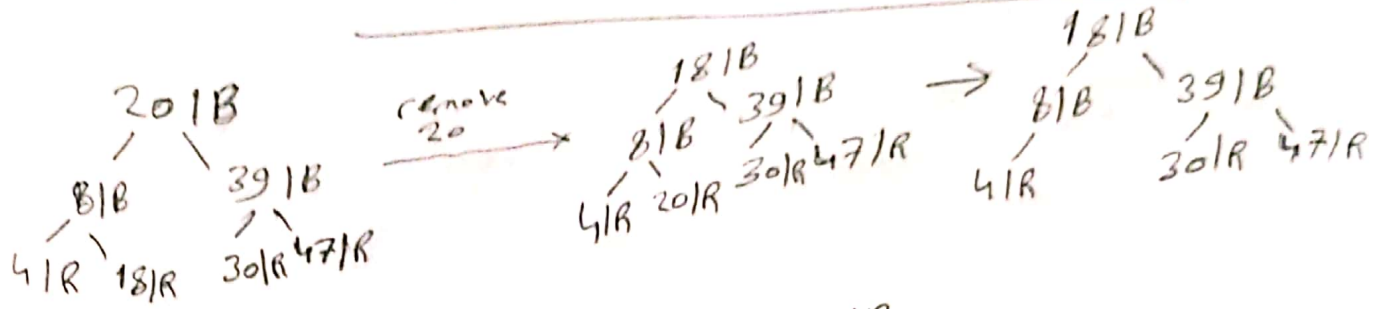 20/B
8/B 39/B
4/R 18/R 30/R 47/R
remove
20
18/B
8/B 39/B
4/R 20/R 30/R 47/R
18/B
8/B 39/B
4/R 30/R 47/R